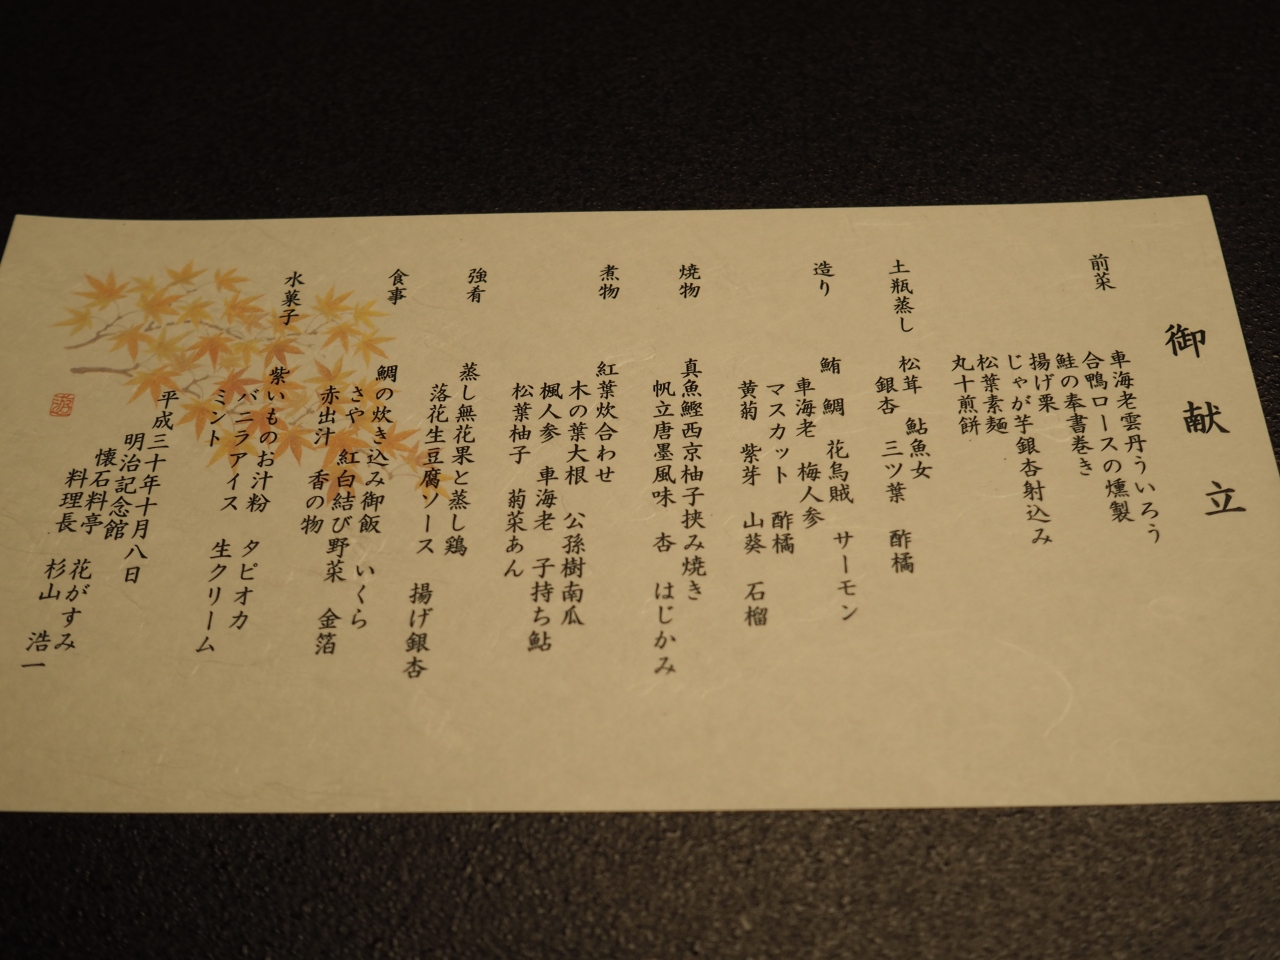 御献立
前菜
車海老雲丹ういろう
合鴨ロースの燻製
鮭の奉書巻き
揚げ栗
じゃが芋銀杏射込み
松葉素麺
丸十煎餅
土瓶蒸し
松茸 鮎魚女
銀杏 三ツ葉 酢橘
造り
鮪 鯛 花烏賊 サーモン
車海老 梅人参
マスカット 酢橘
黄菊 紫芽 山葵 石榴
焼物
真魚鰹西京柚子挟み焼き
帆立唐墨風味 杏 はじかみ
煮物
紅葉炊合わせ
木の葉大根 公孫樹南瓜
楓人参 車海老 子持ち鮎
松葉柚子 菊菜あん
強肴
蒸し無花果と蒸し鶏
落花生豆腐ソース 揚げ銀杏
食事
鯛の炊き込み御飯 いくら
さや 紅白結び野菜 金箔
赤出汁 香の物
水菓子
紫いものお汁粉 タピオカ
バニラアイス 生クリーム
ミント
平成三十年十月八日
明治記念館
懐石料亭 花がすみ
料理長 杉山 浩一